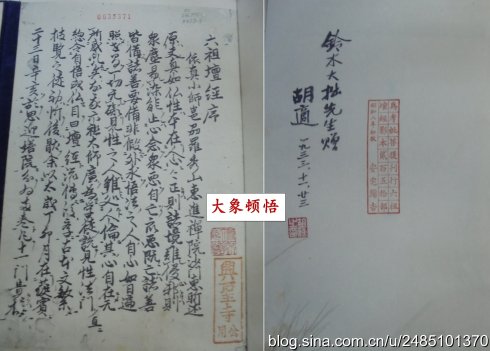 0035371
六祖壇經序
依真小師邕州羅秀山惠進禪院沙門惠昕述
原夫真如佛性本在人心心正則諸境難侵心邪則
眾塵易染能止心念眾惡自亡眾惡既亡諸善
皆備諸善要備非假外求悟法之人自心如日遍
照世間一切無礙見性之人雖處人倫其心自在無
所惑亂矣故我六祖大師廣為學徒直說見性法門
總令自悟成佛目曰壇經流傳後學古本文繁
披覽之徒初忻後厭余以太歲丁卯月在蕤賓
二十三日辛亥於思迎塔院分為兩卷凡十一門貴
興聖寺
大象顿悟
鈴木大拙先生贈
胡適
一九三三·十一·廿三
菩提印行六祖
壇經影本貳百五拾部
昭和八年
安宅彌吉
blog.sina.com.cn/u/2485101370